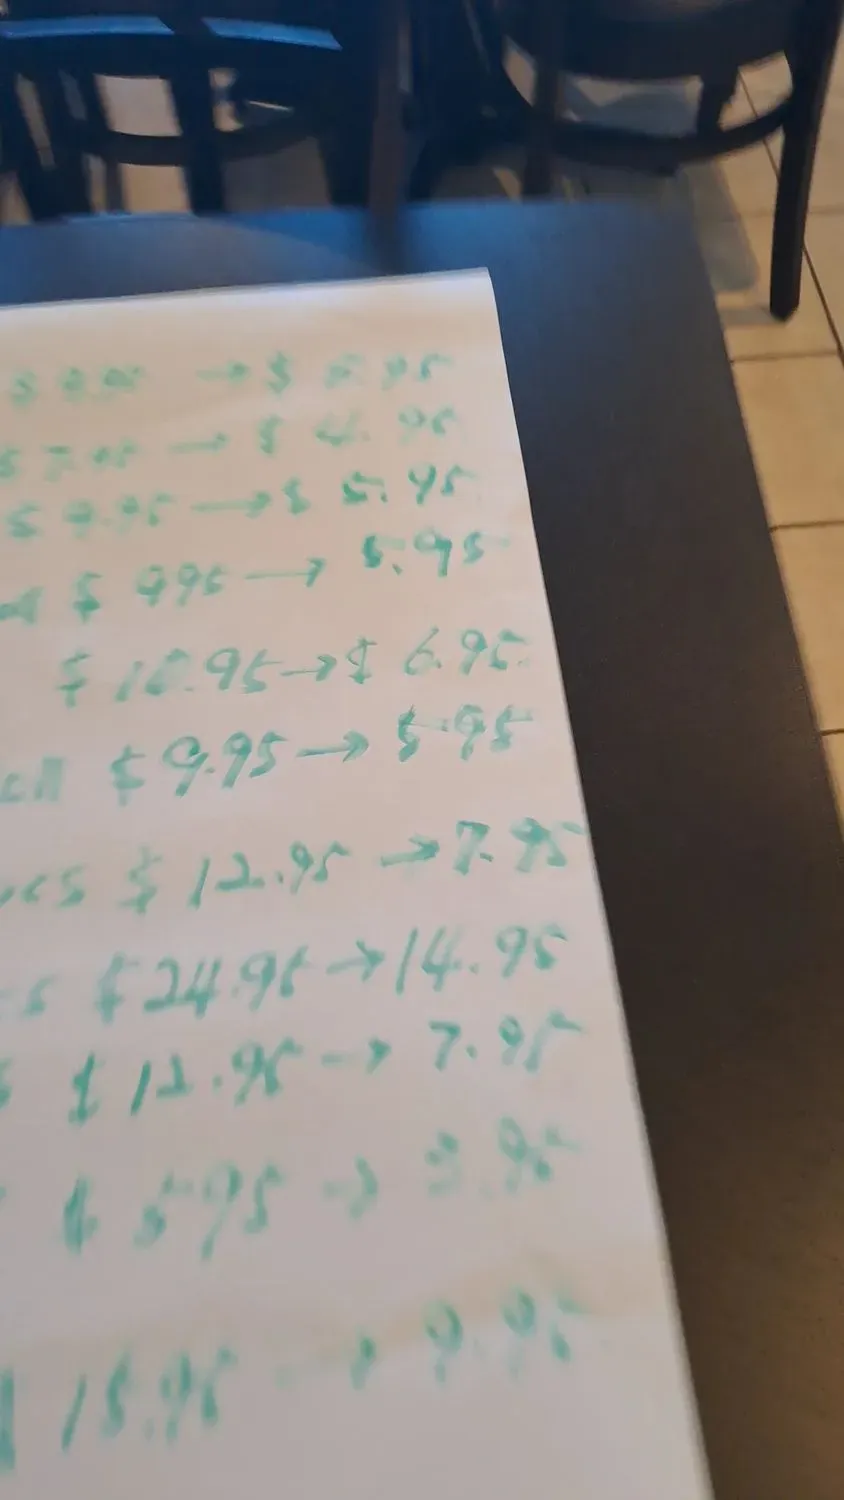 → $ 5.95
$ 7.95 → $ 4.95
$ 9.95 → $ 5.95
$ 9.95 → 5.95
$ 10.95 → $ 6.95
$ 9.95 → 5.95
$ 12.95 → 7.95
$ 24.95 → 14.95
$ 12.95 → 7.95
$ 5.95 → 3.95
15.95 → 9.95